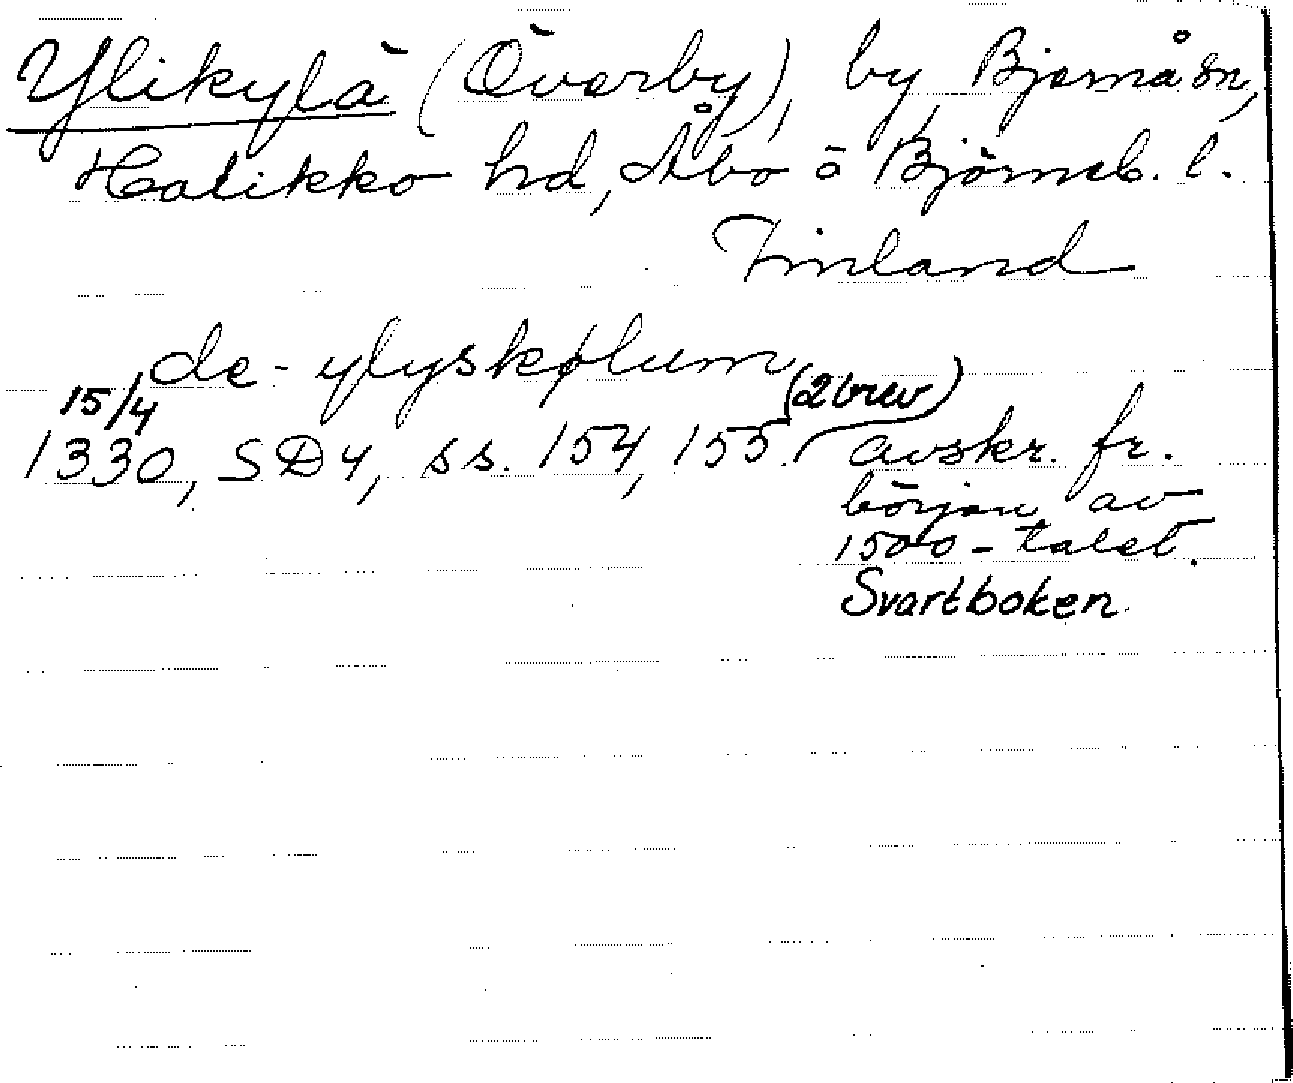 Ylikylä (Överby), by, Bjärnå sn,
Halikko hd, Åbo o Björneb. l.
Finland
de - ylyskølum
15/4 (2 brev)
1330, SD4, ss. 154, 155. avskr. fr.
början av
1500-talet.
Svartboken